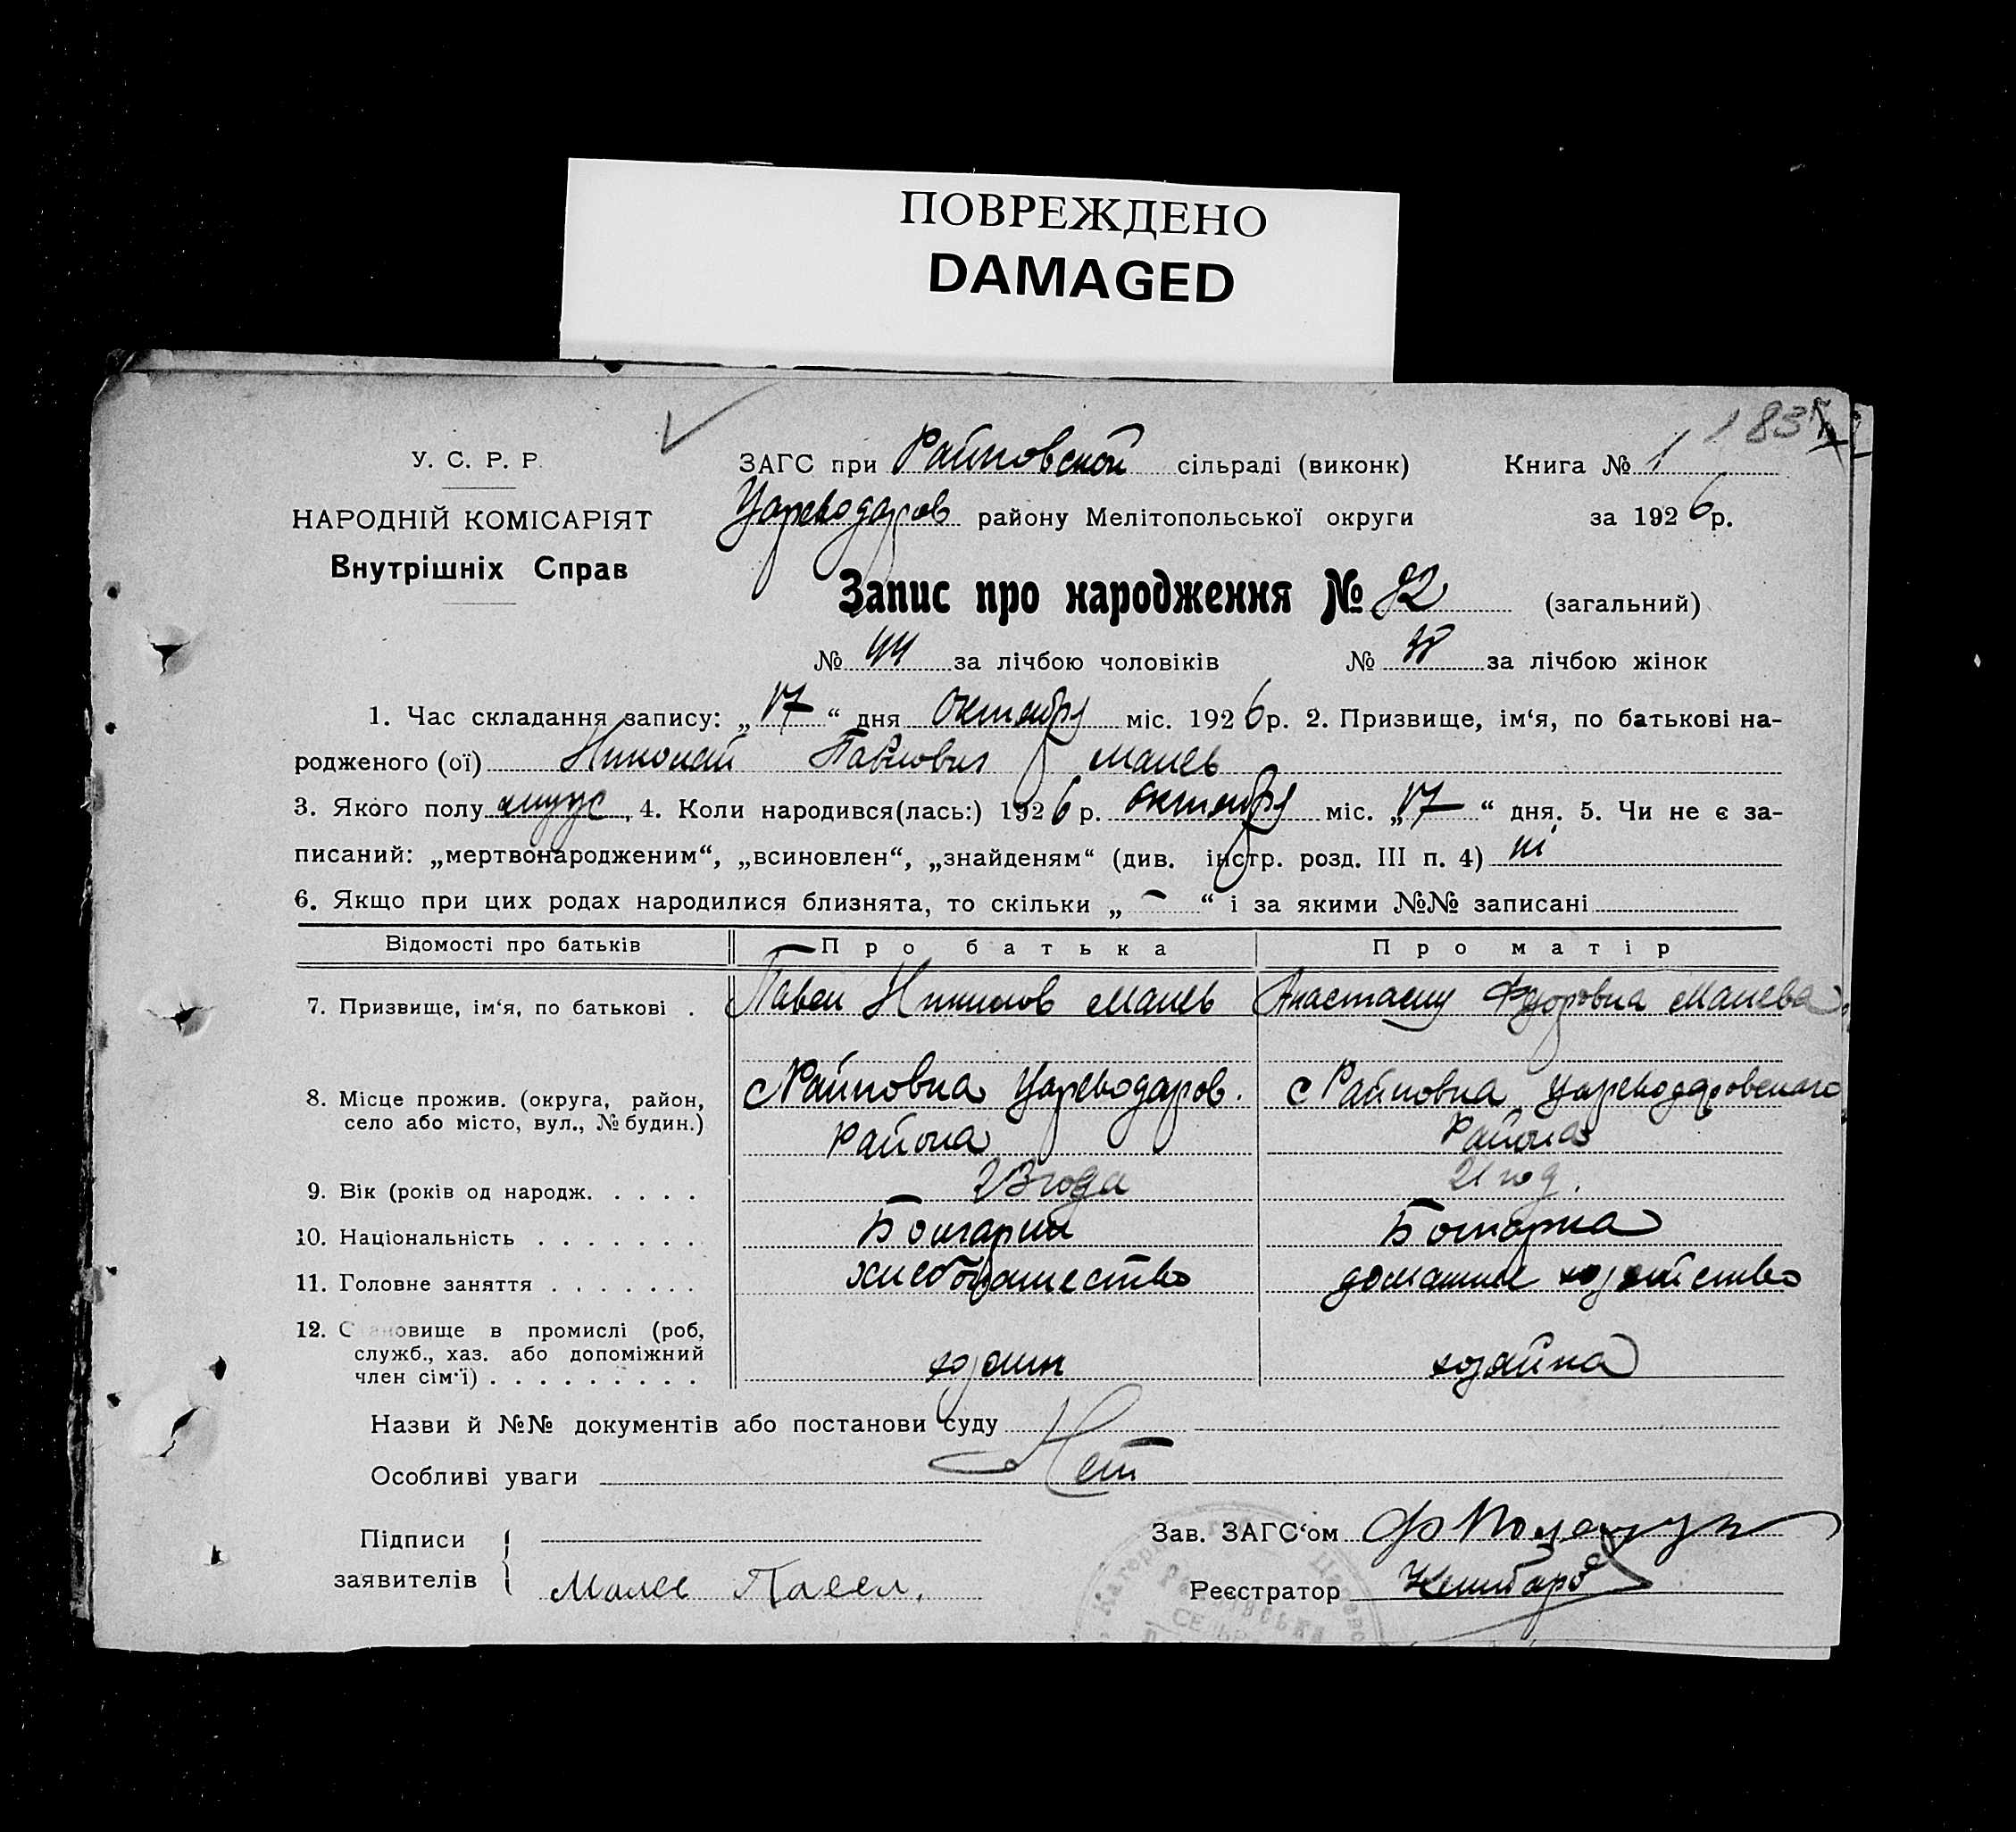 ПОВРЕЖДЕНО
DAMAGED
183
У. С. Р. Р.
НАРОДНІЙ КОМІСАРІЯТ
Внутрішніх Справ
ЗАГС при Райновской сільраді (виконк) Книга № 1
Цареводаров району Мелітопольської округи за 1926 р.
Запис про народження № 82 (загальний)
№ 44 за лічбою чоловіків № 38 за лічбою жінок
1. Час складання запису: „17“ дня октября міс. 1926 р. 2. Призвище, ім‘я, по батькові на-
родженого (ої) Николай Павлович Малев
3. Якого полу мууж, 4. Коли народився(лась:) 1926 р. октября міс. „17“ дня. 5. Чи не є за-
писаний: „мертвонародженим“, „всиновлен“, „знайденям“ (див. інстр. розд. III п. 4)
6. Якщо при цих родах народилися близнята, то скільки „ – “ і за якими №№ записані
Відомості про батьків Про батька Про матір
7. Призвище, ім‘я, по батькові . Павел Николов Малев Анастасия Федоровна Малева
8. Місце прожив. (округа, район, село або місто, вул., № будин.) с Райновка Цареводаров. района с Райновка Цареводаровского района
9. Вік (років од народж. . . . . 23 года 21 год.
10. Національність . . . . . . . Болгарин Болгарка
11. Головне заняття . . . . . . . хлебопашество домашнее хозяйство
12. Становище в промислі (роб, служб., хаз. або допоміжний член сім‘ї) . . . . . . . . . хозяин хозяйка
Назви й №№ документів або постанови суду
Особливі уваги Нет
Підписи заявителів Малев Павел.
Зав. ЗАГС‘ом
Реєстратор